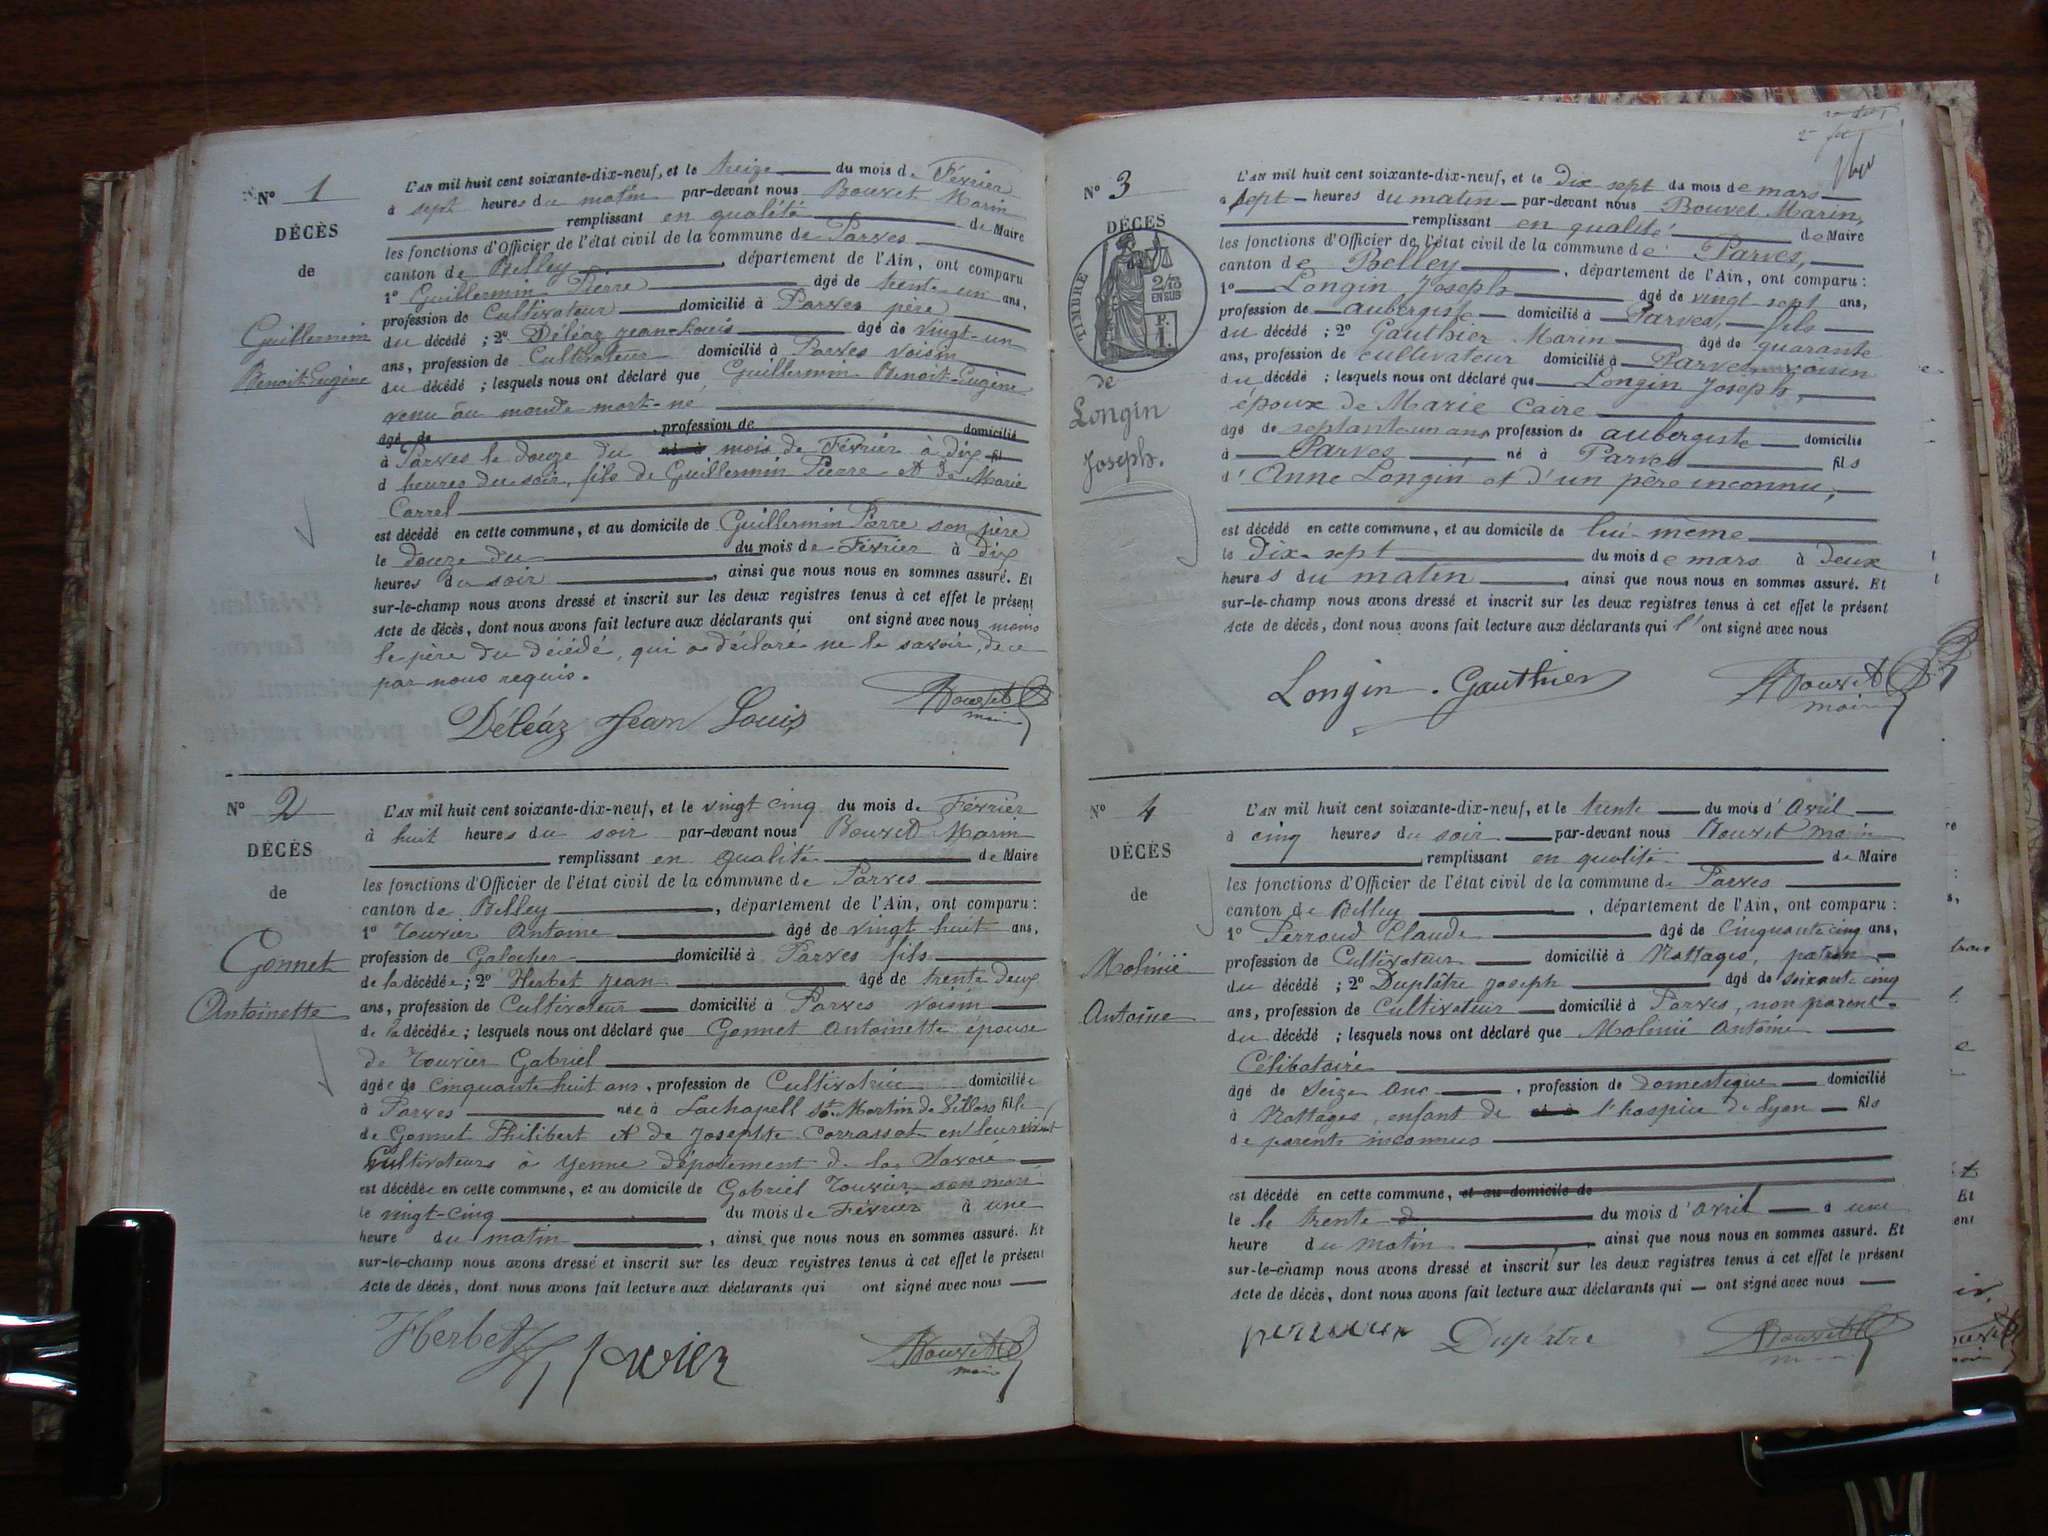 N° 1
DÉCÈS
de
Guillermin
Benoit-Eugène
L'AN mil huit cent soixante-dix-neuf, et le treize du mois de Février
à sept heures du matin par-devant nous Bouvet Marin
remplissant en qualité de Maire
les fonctions d'Officier de l'état civil de la commune de Parves
canton de Belley, département de l'Ain, ont comparu
1° Guillermin Pierre âgé de trente un ans,
profession de Cultivateur domicilié à Parves père
du décédé ; 2° Déléaz Jean-Louis âgé de vingt-un
ans, profession de Cultivateur domicilié à Parves voisin
du décédé ; lesquels nous ont déclaré que Guillermin Benoit-Eugène
venu au monde mort-né
âgé de , profession de domicilié
à Parves le douze du né à mois de Février à dix fil
d heures du soir, fils de Guillermin Pierre et de Marie
Carrel
est décédé en cette commune, et au domicile de Guillermin Pierre son père
le douze du du mois de Février à dix
heures du soir, ainsi que nous nous en sommes assuré. Et
sur-le-champ nous avons dressé et inscrit sur les deux registres tenus à cet effet le présent
Acte de décès, dont nous avons fait lecture aux déclarants qui ont signé avec nous moins
le père du décédé, qui a déclaré ne le savoir, de ce
par nous requis.
Déléaz Jean Louis Bouvet
maire
N° 2
DÉCÈS
de
Gonnet
Antoinette
L'AN mil huit cent soixante-dix-neuf, et le vingt cinq du mois de Février
à huit heures du soir par-devant nous Bouvet Marin
remplissant en qualité de Maire
les fonctions d'Officier de l'état civil de la commune de Parves
canton de Belley, département de l'Ain, ont comparu :
1° Touvier Antoine âgé de vingt huit ans,
profession de Galocher domicilié à Parves fils
de la décédée ; 2° Herbet Jean âgé de trente deux
ans, profession de Cultivateur domicilié à Parves voisin
de la décédée ; lesquels nous ont déclaré que Gonnet Antoinette épouse
de Touvier Gabriel
âgée de cinquante huit ans, profession de Cultivatrice domiciliée
à Parves née à Lachapell St. Martin de Villars fille
de Gonnet Philibert et de Josephte Corrassat en leur vivant
Cultivateurs à Yenne département de la Savoie
est décédée en cette commune, et au domicile de Gabriel Touvier son mari
le vingt-cinq du mois de Février à une
heure du matin, ainsi que nous nous en sommes assuré. Et
sur-le-champ nous avons dressé et inscrit sur les deux registres tenus à cet effet le présent
Acte de décès, dont nous avons fait lecture aux déclarants qui ont signé avec nous
Herbet Touvier Bouvet
maire
N° 3
DÉCÈS
TIMBRE
2/10
EN SUS
P.
1.
de
Longin
Joseph.
L'AN mil huit cent soixante-dix-neuf, et le Dix sept du mois de mars
à sept heures du matin par-devant nous Bouvet Marin,
remplissant en qualité de Maire
les fonctions d'Officier de l'état civil de la commune de Parves,
canton de Belley, département de l'Ain, ont comparu :
1° Longin Joseph âgé de vingt sept ans,
profession de aubergiste domicilié à Parves, fils
du décédé ; 2° Gauthier Marin âgé de quarante
ans, profession de cultivateur domicilié à Parves, voisin
du décédé ; lesquels nous ont déclaré que Longin Joseph,
époux de Marie Caire
âgé de septante un ans, profession de aubergiste domicilié
à Parves né à Parves fils
d'Anne Longin et d'un père inconnu,
est décédé en cette commune, et au domicile de lui-même
le Dix-sept du mois de mars à Deux
heures du matin, ainsi que nous nous en sommes assuré. Et
sur-le-champ nous avons dressé et inscrit sur les deux registres tenus à cet effet le présent
Acte de décès, dont nous avons fait lecture aux déclarants qui l'ont signé avec nous
Longin Gauthier Bouvet
maire
N° 4
DÉCÈS
de
Molinié
Antoine
L'AN mil huit cent soixante-dix-neuf, et le trente du mois d'avril
à cinq heures du soir par-devant nous Bouvet Marin
remplissant en qualité de Maire
les fonctions d'Officier de l'état civil de la commune de Parves
canton de Belley, département de l'Ain, ont comparu :
1° Perroud Claude âgé de cinquante cinq ans,
profession de Cultivateur domicilié à Nattages, patron
du décédé ; 2° Duplâtre Joseph âgé de soixante cinq
ans, profession de Cultivateur domicilié à Parves, non parent
du décédé ; lesquels nous ont déclaré que Molinié Antoine
Célibataire
âgé de seize ans, profession de domestique domicilié
à Nattages, enfant de l'hospice de Lyon fils
de parents inconnus
est décédé en cette commune, et au domicile de
le le trente du mois d'avril à une
heure du matin, ainsi que nous nous en sommes assuré. Et
sur-le-champ nous avons dressé et inscrit sur les deux registres tenus à cet effet le présent
Acte de décès, dont nous avons fait lecture aux déclarants qui ont signé avec nous
Duplatre Bouvet